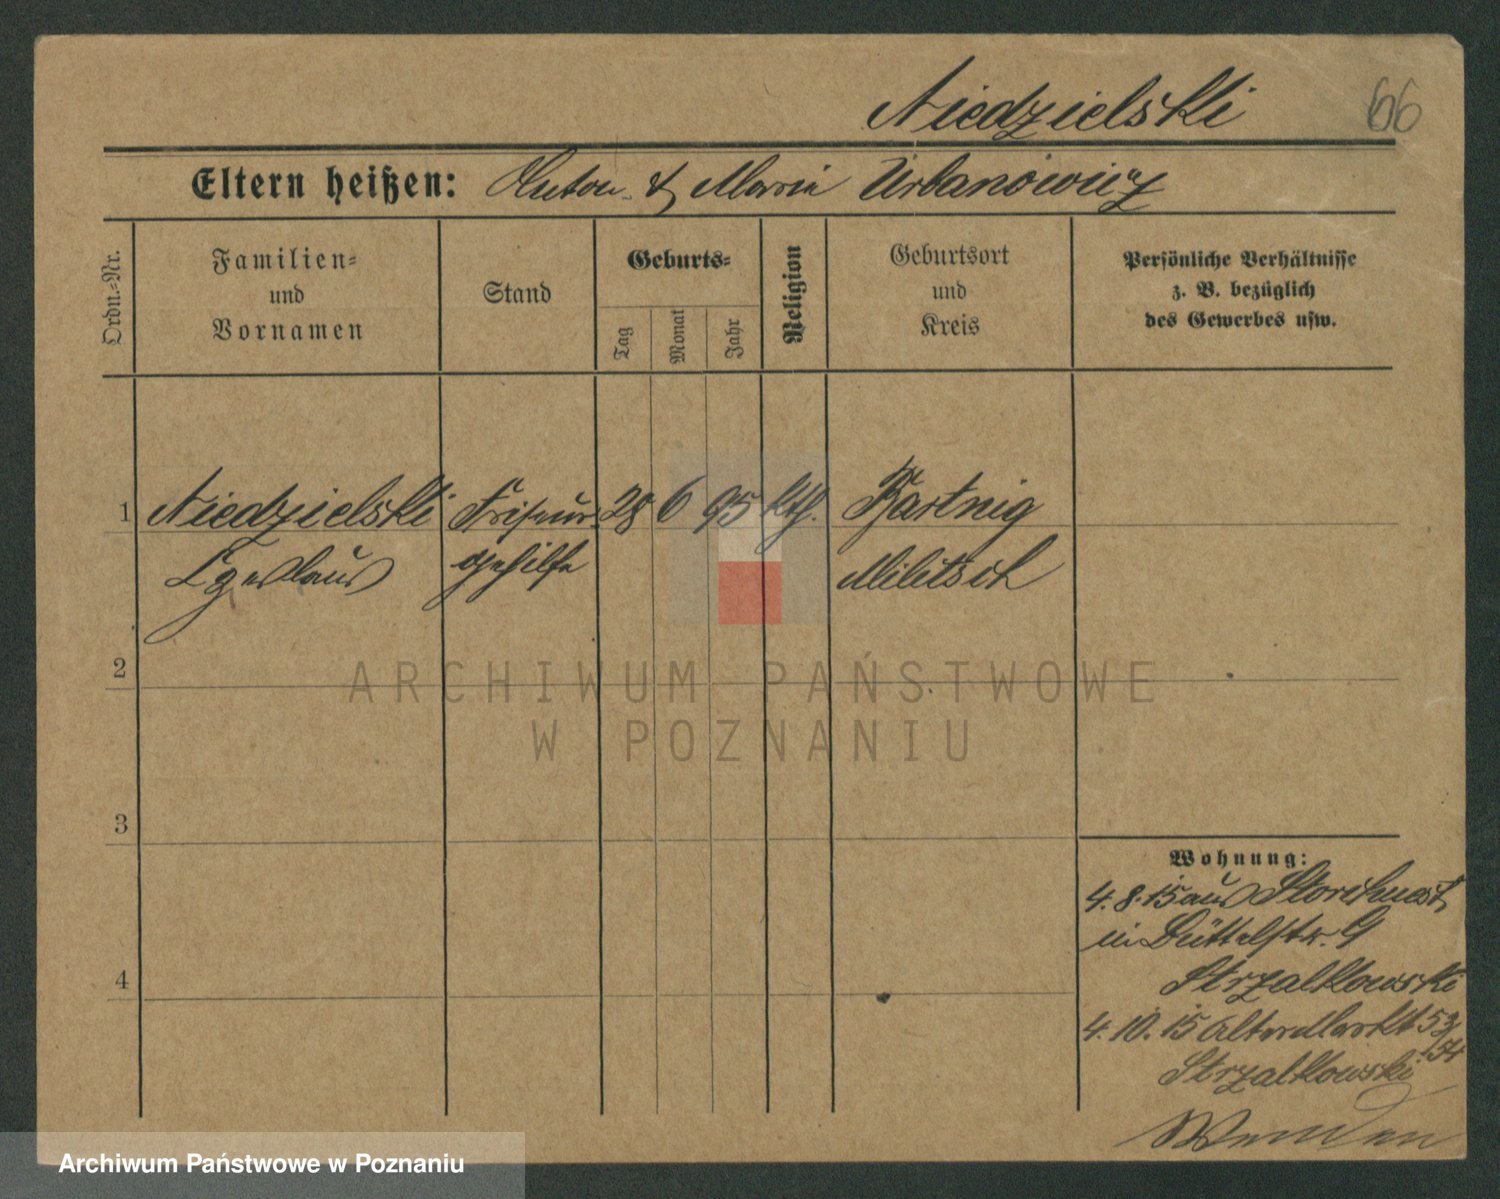 Niedzielski
66
Eltern heißen: Anton & Maria Urbanowicz
Ordn.-Nr.
Familien-
und
Vornamen
Stand
Geburts-
Tag
Monat
Jahr
Religion
Geburtsort
und
Kreis
Persönliche Verhältnisse
z. B. bezüglich
des Gewerbes usw.
1 Niedzielski Friseur- 28 6 95 kth. Bartnig
Czeslaus gehilfe Militsch
2
3
4
Wohnung:
4.8.15 aus Storchnest
in Büttelstr. 9
Strzalkowski
4.10.15 Alter Markt 53/54
Strzalkowski
Wenden
ARCHIWUM PAŃSTWOWE
W POZNANIU
Archiwum Państwowe w Poznaniu